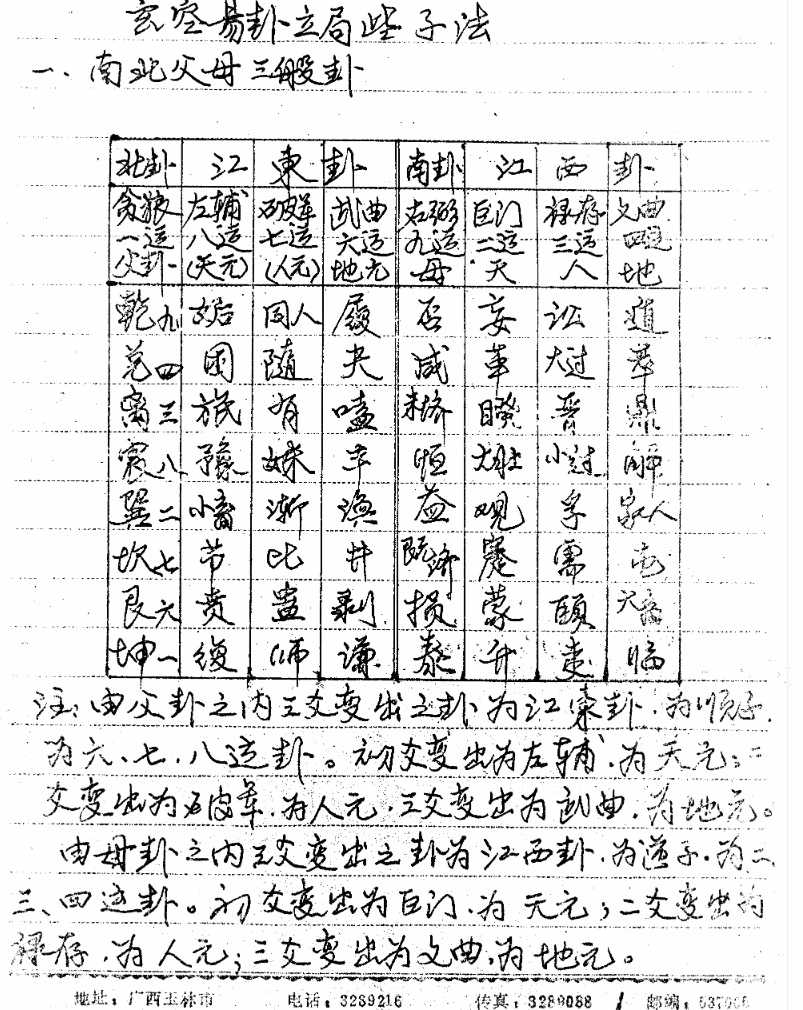 玄空易卦立局些子法
一、南北父母三般卦
北卦 江 東 卦 南卦 江 西 卦
贪狼 左辅 破军 武曲 右弼 巨门 禄存 文曲
一运 八运 七运 六运 九运 二运 三运 四运
父卦 (天元) (人元) 地元 母 天 人 地
乾九 姤 同人 履 否 妄 讼 遁
兑四 困 随 夬 咸 革 大过 萃
离三 旅 有 嗑 未济 睽 晋 鼎
震八 豫 妹 丰 恒 大壮 小过 解
巽二 小畜 渐 涣 益 观 孚 家人
坎七 节 比 井 既济 蹇 需 屯
艮六 贲 蛊 剥 损 蒙 颐 大畜
坤一 復 师 谦 泰 升 夷 临
注:由父卦之内三爻变出之卦为江東卦.为顺子.
为六、七、八运卦。初爻变出为左辅.为天元;二
爻变出为破军.为人元.三爻变出为武曲.为地元。
由母卦之内三爻变出之卦为江西卦.为逆子.为二
三、四运卦。初爻变出为巨门.为天元;二爻变出为
禄存.为人元;三爻变出为文曲.为地元。
地址:广西玉林市 电话:3289216 传真:3289088 邮编: